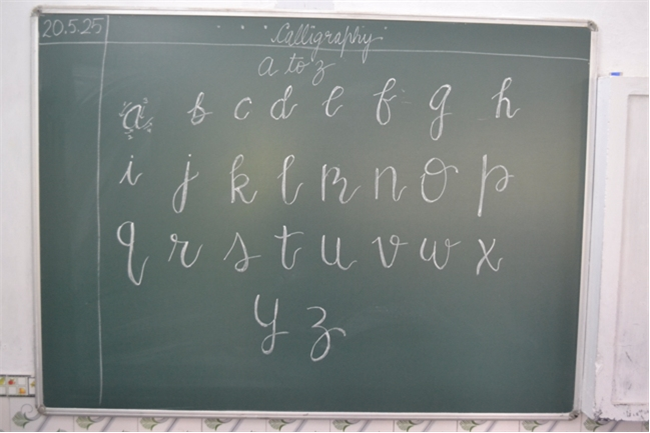 20.5.25
Calligraphy
a to z
a b c d e f g h
i j k l m n o p
q r s t u v w x
y z